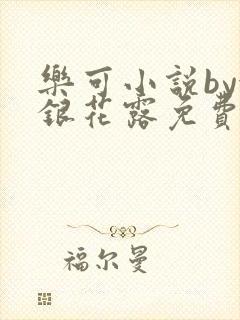 樂可小說by
銀花露免費
福尔曼